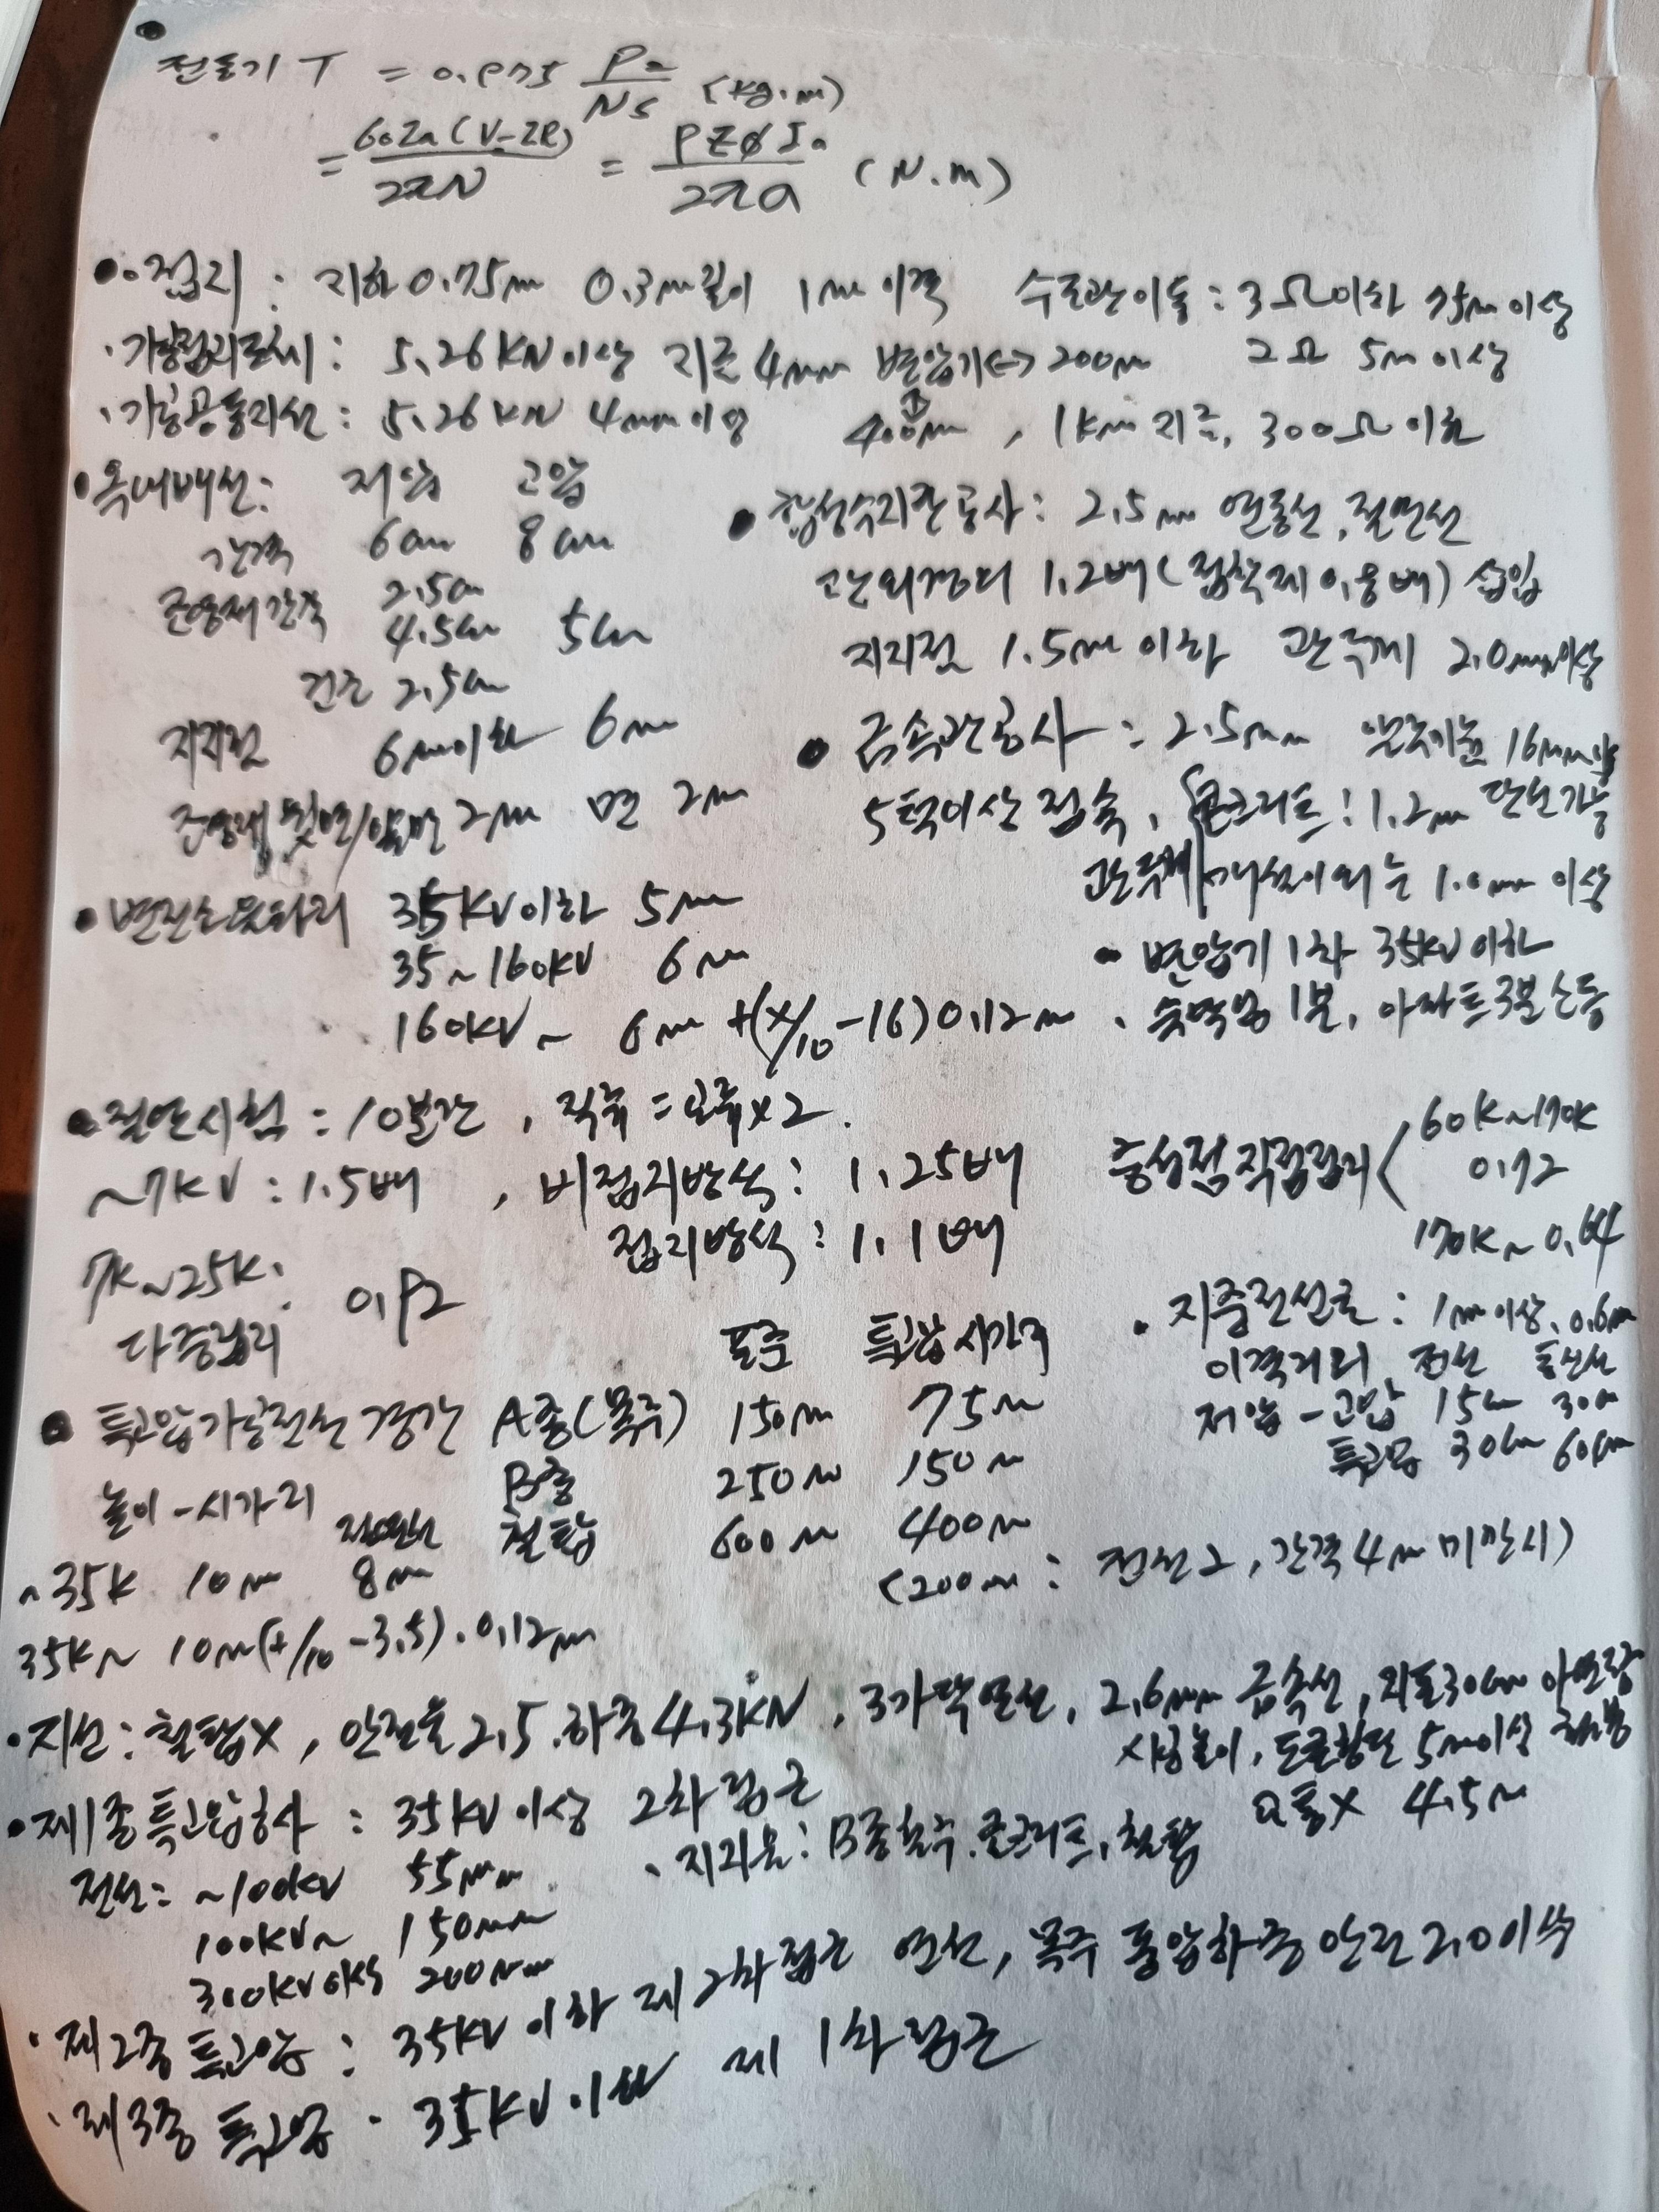 전동기 T = 0.975 P₂/Ns (kg·m)
= 60Ia(V-IR)/2πN = PZφIa/2πa (N.m)
접지 : 지하 0.75m 0.3m깊이 1m 이격 수도관이용 : 3Ω이하 75m 이상
· 가공접지도체 : 5.26KN이상 지름 4mm 변압기↔200m 2Ω 5m이상
· 가공공동지선 : 5.26KN 4mm이상 400m , 1km 지름, 300Ω 이하
• 옥내배선 : 저압 고압
간격 6cm 8cm
조영재간격 2.5cm
4.5cm 5cm
건조 2.5cm
지지점 6m이하 6m
조영재 윗면/옆면 2m 면 2m
• 합성수지관공사 : 2.5mm 연동선, 절연선
관 외경의 1.2배 (접착제 0.8배) 삽입
지지점 1.5m 이하 관 두께 2.0mm이상
• 금속관공사 : 2.5mm 알루미늄 16mm
5턱이상 접속, 콘크리트 : 1.2mm 단선가능
관두께 이외는 1.0mm 이상
• 변전소 울타리 35KV이하 5m
35~160KV 6m
160KV~ 6m +(X/10-16)0.12m
• 변압기 1차 35KV이하
· 숙박업 1분, 아파트 3분 소등
• 절연시험 : 10분간 , 직류 = 교류×2.
~7KV : 1.5배 , 비접지방식 : 1.25배
접지방식 : 1.1배
중성점 직접접지 < 60K~170K
0.72
170K~ 0.64
7K~25K :
다중접지 0.92
• 지중전선로 : 1m이상, 0.6m
이격거리 전선 통신선
저압-고압 15cm 30cm
특고압 30cm 60cm
표준 특고압 시가지
• 특고압 가공전선 경간 A종(목주) 150m 75m
B종 250m 150m
철탑 600m 400m
(200m : 전선2, 간격 4m 미만시)
높이 - 시가지 절연선
~35K 10m 8m
35K~ 10m(+/10-3.5).0.12m
• 지선 : 철탑X , 안전율 2.5. 하중 4.3KN , 3가닥 연선, 2.6mm 금속선, 지표 30cm 아연도강
사용높이, 도로횡단 5m이상
교통X 4.5m
• 제1종 특고압 공사 : 35KV이상 2차 접근
· 지지물 : B종 철주, 콘크리트, 철탑
전선 : ~100KV 55mm
100KV~ 150mm
300KV이상 200mm
· 제2종 특고압 : 35KV이하 제2차 접근 연선, 목주 풍압하중 안전 2.0이상
· 제3종 특고압 · 35KV이하 제1차 접근